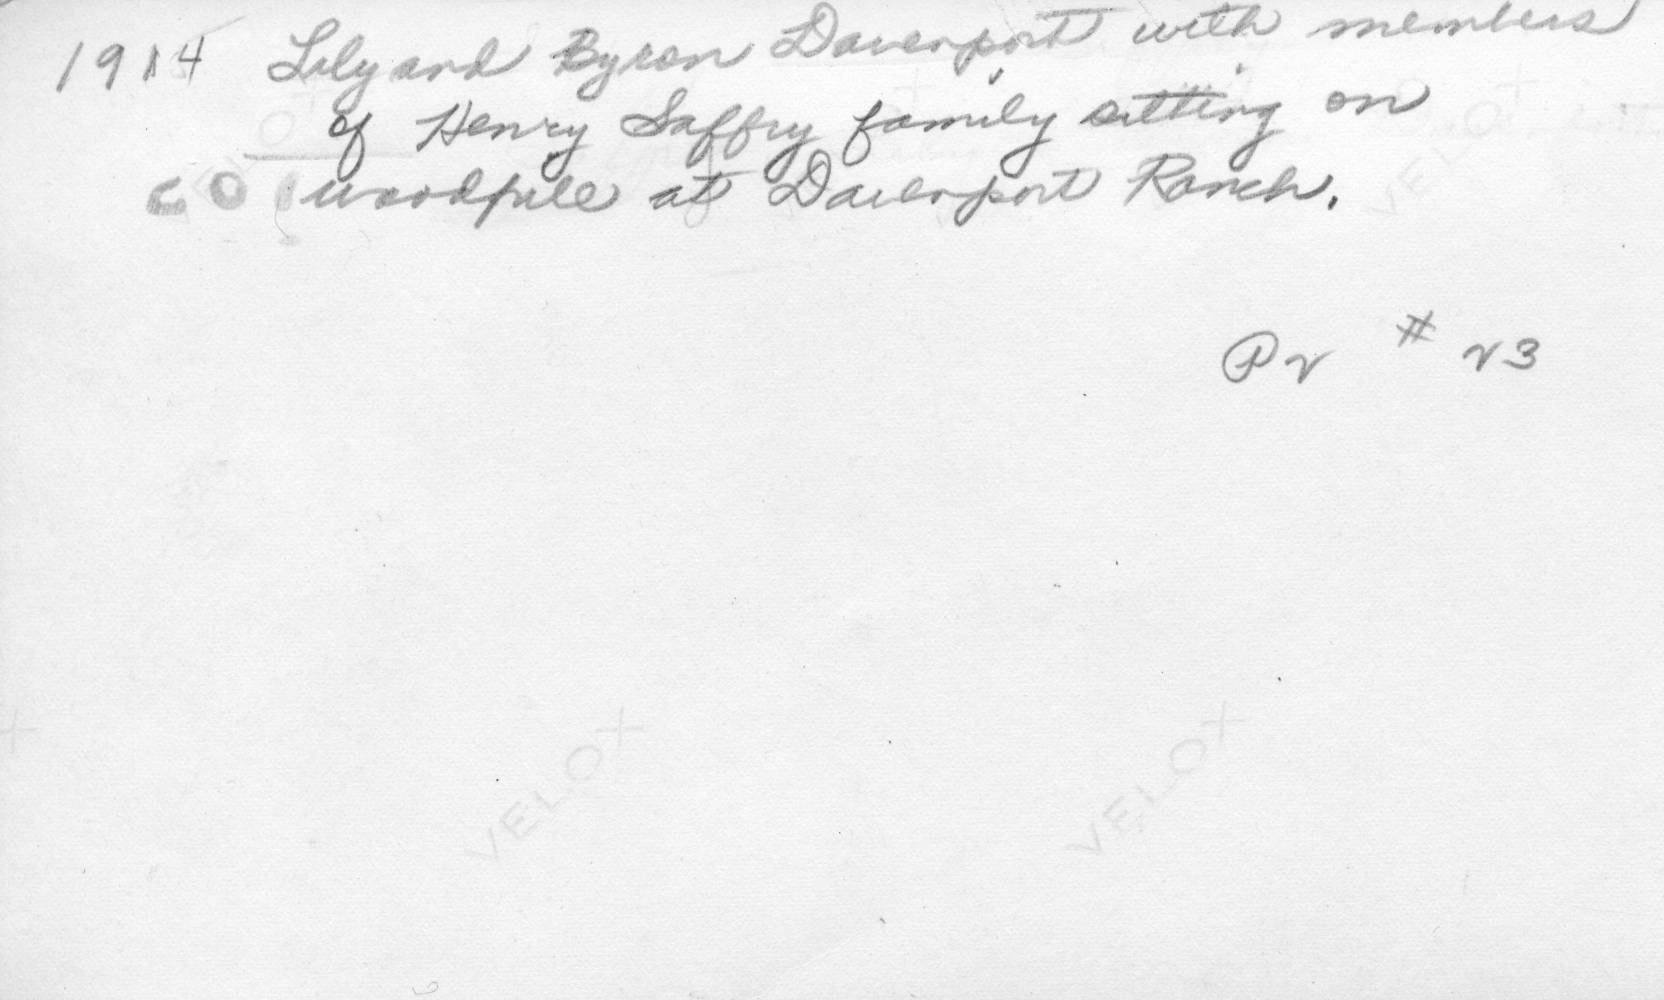 1914 Lily and Byron Davenport with members
of Henry Saffry family sitting on
woodpile at Davenport Ranch.
# 23
VELOX
VELOX
VELOX